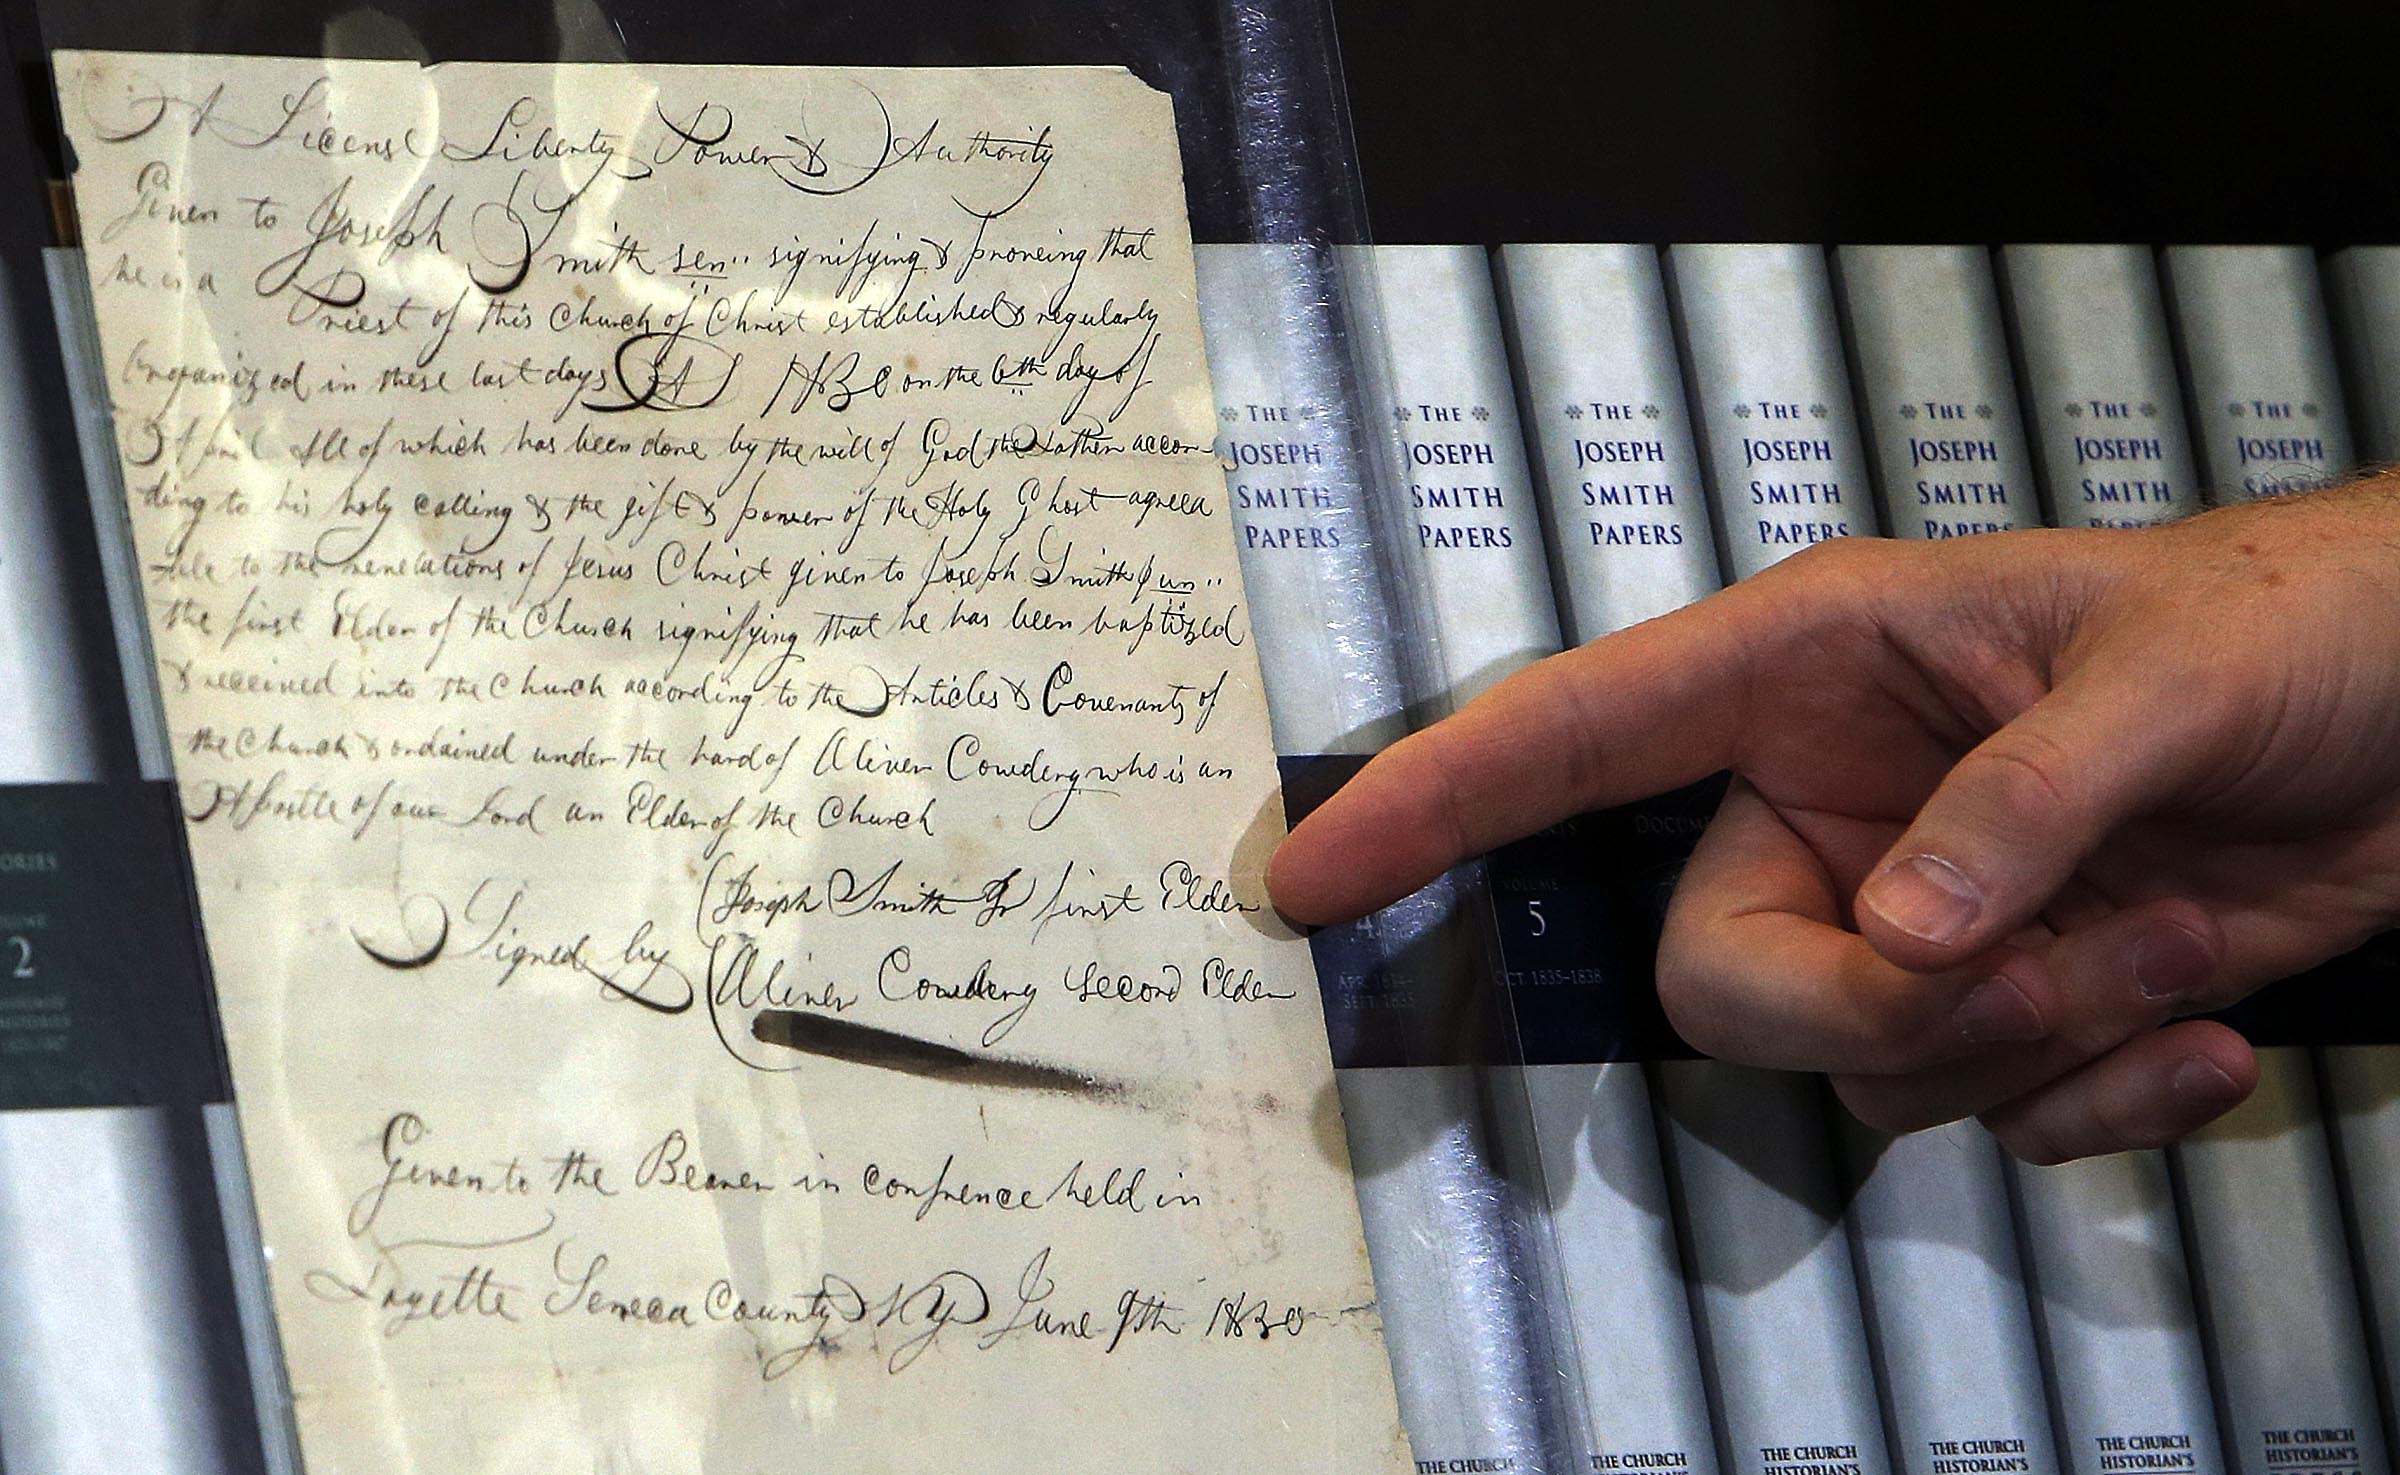 A License Liberty Power & Authority
Given to Joseph Smith sen.. signifying & proveing that
he is a Priest of this Church of Christ established & regularly
Organized in these last days AD 1830 on the 6th day of
April All of which has been done by the will of God the Father accor-
ding to his holy calling & the gift & power of the Holy Ghost agreea
able to the revelations of Jesus Christ given to Joseph Smith Jun..
the first Elder of the Church signifying that he has been baptized
& received into the Church according to the Articles & Covenants of
the Church & ordained under the hand of Oliver Cowdery who is an
Apostle of our Lord an Elder of the Church
Signed by
Joseph Smith Jr first Elder
Oliver Cowdery second Elder
Given to the Bearer in confrence held in
Fayette Seneca County NY June 9th 1830
THE JOSEPH SMITH PAPERS
THE JOSEPH SMITH PAPERS
THE JOSEPH SMITH PAPERS
THE JOSEPH SMITH PAPERS
THE JOSEPH SMITH PAPERS
THE JOSEPH SMITH PAPERS
THE JOSEPH SMITH
2
VOLUME
5
OCT 1835–1838
4
SEPT 1835
THE CHURCH
THE CHURCH HISTORIAN'S
THE CHURCH HISTORIAN'S
THE CHURCH HISTORIAN'S
THE CHURCH HISTORIAN'S
THE CHURCH HISTORIAN'S